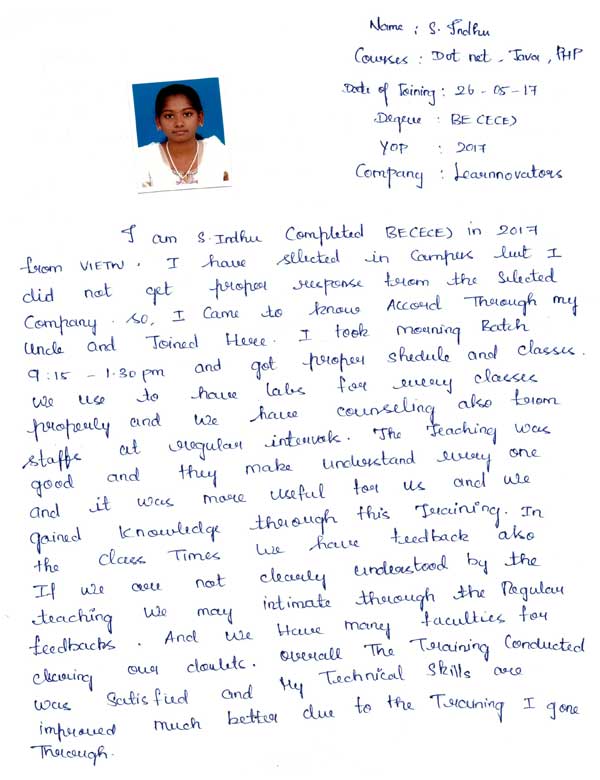 Name : S. Indhu
Courses : Dot net, Java, PHP
Date of Joining : 26-05-17
Degree : BE(ECE)
YOP : 2017
Company : Learnnovators
I am S. Indhu Completed BE(ECE) in 2017
from VIETW. I have sllected in Campus but I
did not get proper response from the Selected
Company. So, I Came to know Accord Through my
Uncle and Joined Here. I took morning Batch
9:15 - 1.30 pm and got proper shedule and classes.
we use to have labs for every classes
properly and we have counseling also from
staffs at regular intervals. The Teaching was
good and they make understand every one
and it was more useful for us and we
gained knowledge through this Training. In
the class Times we have feedback also
If we are not clearly understood by the
teaching we may intimate through the Regular
feedbacks. And we Have many faculties for
clearing our doubts. overall The Training Conducted
was Satisfied and My Technical Skills are
improved much better due to the Training I gone
Through.